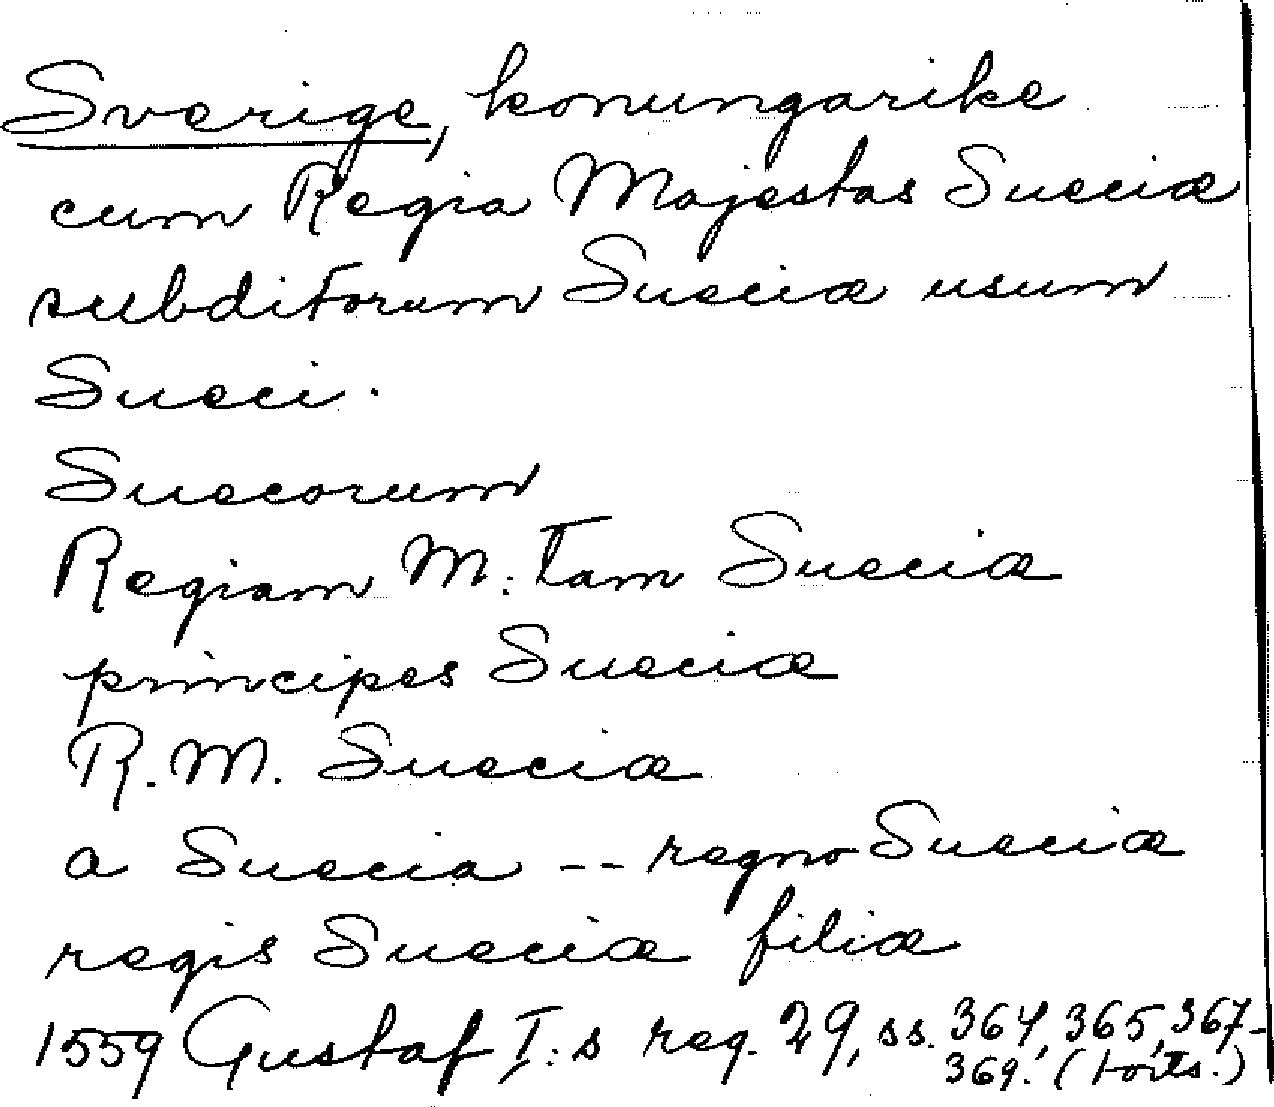 Sverige, konungarike
cum Regia Majestas Sueciæ
subditorum Sueciæ usum
Sueci.
Suecorum
Regiam M:tam Sueciæ
principes Sueciæ
R.M. Sueciæ
a Suecia -- regno Sueciæ
regis Sueciæ filiæ
1559 Gustaf I:s reg. 29, ss. 364, 365, 367-
369. (forts.)